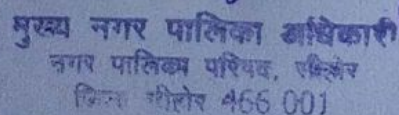 मुख्य नगर पालिका अधिकारी
नगर पालिका परिषद, सीहोर
जिला सीहोर 466 001